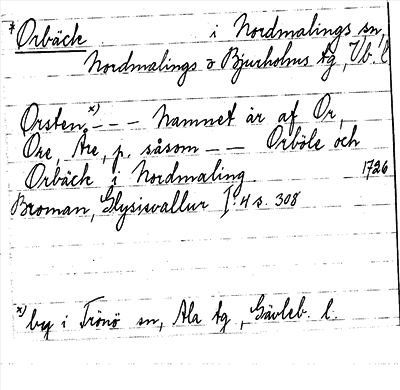 *Orbäck i Nordmalings sn,
Nordmalings o Bjurholms tg, Vb. l
Orsten x) - - - Namnet är af Or,
Ore, Are, p. såsom - - Orböle och
Orbäck i Nordmaling. 1726
Broman, Glysisvallur I: 4 s. 308
x) by i Trönö sn, Ala tg, Gävleb. l.